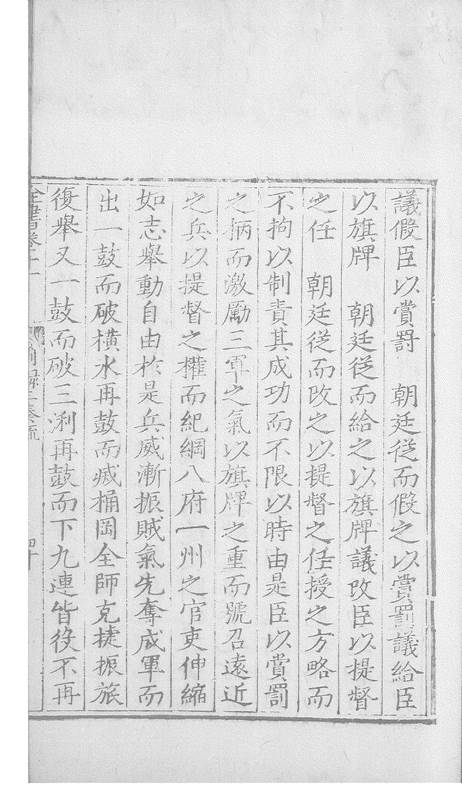 議假臣以賞罰　朝廷從而假之以賞罰議給臣
以旗牌　朝廷從而給之以旗牌議改臣以提督
之任　朝廷從而改之以提督之任授之方略而
不拘以制責其成功而不限以時由是臣以賞罰
之柄而激勵三軍之氣以旗牌之重而號召遠近
之兵以提督之權而紀綱八府一州之官吏伸縮
如志舉動自由於是兵威漸振賊氣先奪成軍而
出一鼓而破橫水再鼓而滅桶岡全師克捷振旅
復舉又一鼓而破三浰再鼓而下九連皆役不再
全書卷十一　別錄三奏疏　四十